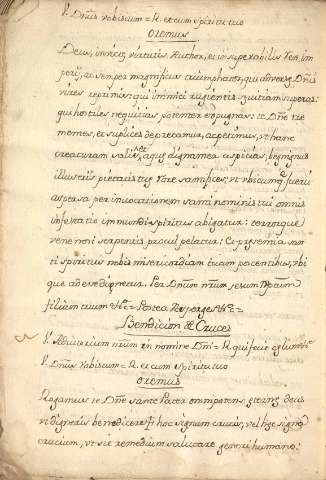 V. Dñus vobiscum = R. et cum spiritu tuo
Oremus
Deus, invictę virtutis Author, et insuperabilis Rex im
perij, ac semper magnificus triumphator, qui adversę Dñis
vires reprimis: qui inimici rugientis sęvitiam superas:
qui hostiles nequitias potenter expugnas: te Dñe tre
mentes, et suplices deprecamur, ac petimus, ut hanc
creaturam salis, et aquę dignanter aspicias, benignus
illustres, pietatis tuę rore santifices, ut ubicumque fuerit
aspersa per invocationem santi nominis tui omnis
infestatio immundi spiritus abigatur: terrorque
venenosi serpentis procul pelatur: et presentia san
ti spiritus nobis misericordiam tuam poscentibus, ubi
que adesse dignetur. Per Dnum nrum Jesum Xpum
filium tuum &c = Postea Asperges &c =
Bendicion de Cruces
V. Adiutorium nrum in nomine Dni = R. qui fecit cęlum &c
V. Dñus vobiscum = R. et cum spiritu tuo
Oremus
Rogamus te Dñe sante Pater omnipotens, ęterne Deus
ut digneris benedicere hoc signum crucis, vel hęc signa
crucium, ut sit remedium salutare generi humano: